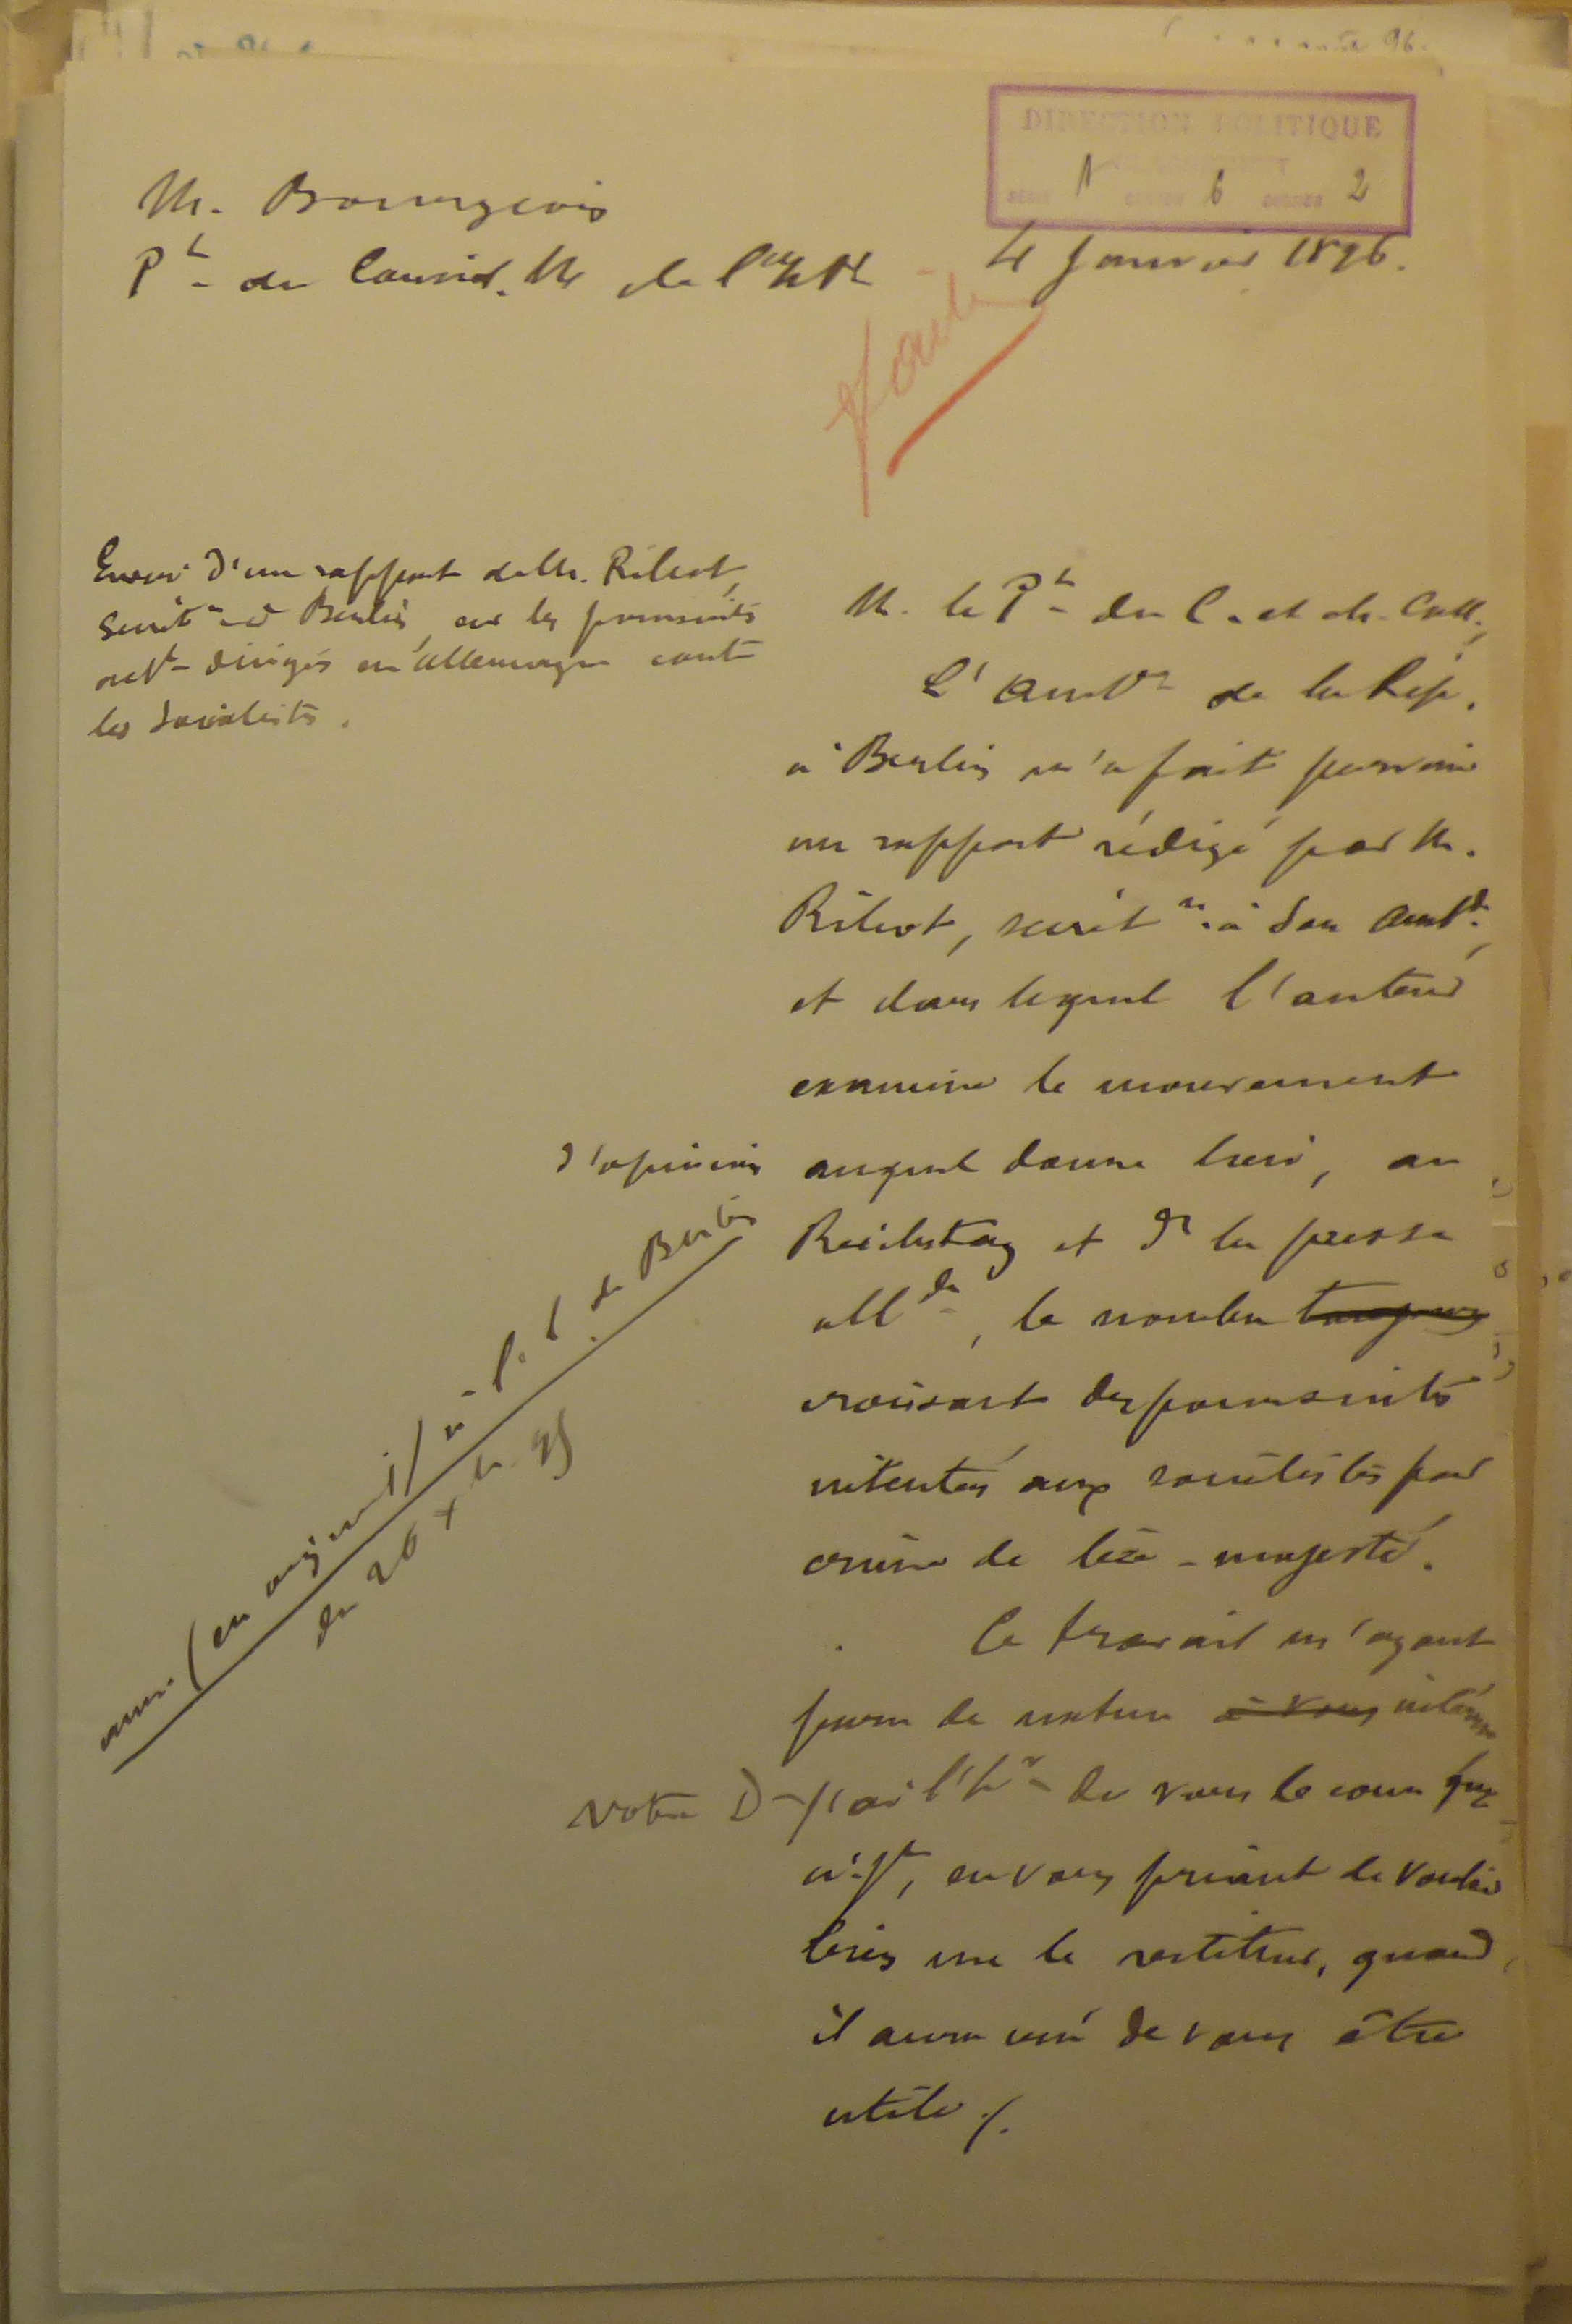 DIRECTION POLITIQUE
N 6 2
M. Bourgeois
Pt du Conseil. M. de l'Int
4 Janvier 1896.
Envoi d'un rapport de M. Ribot,
Secrét à Berlin, sur les poursuites
act dirigés en Allemagne contre
les Socialistes.
M. le Pt du C. et ch. Coll.,
L'Ambr de la Rép.
à Berlin m'a fait parvenir
un rapport rédigé par M.
Ribot, secrétre à son Ambde,
et dans lequel l'auteur
examine le mouvement
d'opinion auquel donne lieu, au
Reichstag et ds la presse
allde, le nombre toujours
croissant des poursuites
intentées aux socialistes par
crime de lèse-majesté.
Ce travail m'ayant
paru de nature à vous intéresser
Votre D j'ai l'hr de vous le comm
ci-jt, en vous priant de vouloir
bien me le restituer, quand
il aura cessé de vous être
utile ./.
ann. (en original) à l. d de Berlin
du 26 Xbre 95